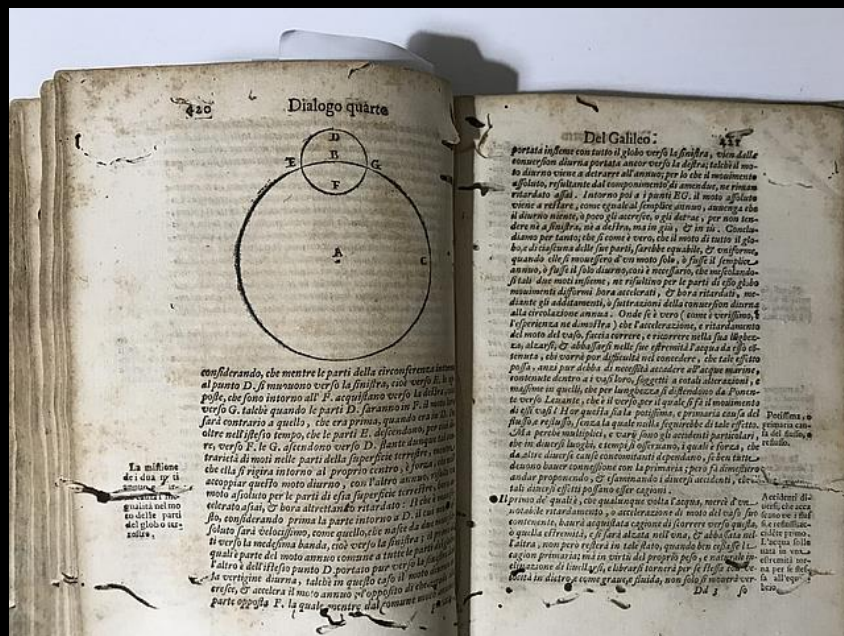 420
Dialogo quarto
D
B
E
G
F
A
C
considerando, che mentre le parti della circonferenza intorno
al punto D. si muouono verso la sinistra, cioè verso E. le op
poste, che sono intorno all' F. acquistano verso la destra, cioè
verso G. talchè quando le parti D. saranno in F. il moto loro
sarà contrario a quello, che era prima, quando era in D. In
oltre nell'istesso tempo, che le parti E. descendono, per così di
re, verso F. le G. ascendono verso D. stante dunque tal con
trarietà di moti nelle parti della superficie terrestre, mentre
che ella si rigira intorno al proprio centro, è forza, che nell'
accoppiar questo moto diurno, con l'altro annuo, risulti
moto assoluto per le parti di essa superficie terrestre, hora ac
celerato assai, & hora altrettanto ritardato: Il che è
sto, considerando prima la parte intorno a D. il cui moto as
soluto sarà velocissimo, come quello, che nasce da due moti fat
ti verso la medesima banda, cioè verso la sinistra; il primo de'
quali è parte del moto annuo comune a tutte le parti del globo,
l'altro è dell'istesso punto D. portato pur verso la sinistra dal
la vertigine diurna, talchè in questo caso il moto diurno ac
cresce, & accelera il moto annuo; l'opposito di che accade alla
parte opposta F. la quale mentre dal comune moto annuo è
La mistione
de i due
gualità nel mo
to delle parti
del globo ter-
restre.
Del Galileo.
421
portata insieme con tutto il globo verso la sinistra, vien dalla
conuersion diurna portata ancor verso la destra; talchè il mo-
to diurno viene a detrarre all'annuo; per lo che il mouimento
assoluto, resultante dal componimento di amendue, ne riman
ritardato assai. Intorno poi a i punti EG. il moto assoluto
viene a restare, come eguale al semplice annuo, auuenga che
il diurno niente, ò poco gli accresce, o gli detrae, per non ten-
dere nè a sinistra, nè a destra, ma in giù, & in sù. Conclu-
diamo per tanto; che sì come è vero, che il moto di tutto il glo-
bo, e di ciascuna delle sue parti, sarebbe equabile, & vniforme,
quando elle si mouessero d'vn moto solo, ò fusse il semplice
annuo, ò fusse il solo diurno, così è necessario, che mescolando-
si tali due moti insieme, ne risultino per le parti di esso globo
mouimenti difformi hora accelerati, & hora ritardati, me-
diante gli additamenti, ò suttrazioni della conuersion diurna
alla circolazione annua. Onde se è vero (come è verissimo, e
l'esperienza ne dimostra) che l'accelerazione, e ritardamento
del moto del vaso, faccia correre, e ricorrere nella sua lunghez-
za, alzarsi, & abbassarsi nelle sue estremità l'acqua da esso con-
tenuta, chi vorrà por difficultà nel concedere, che tale effetto
possa, anzi pur debba di necessità accadere all'acque marine,
contenute dentro a i vasi loro, soggetti a cotali alterazioni, e
massime in quelli, che per lunghezza si distendono da Ponen-
te verso Leuante, che è il verso, per il quale si fà il mouimento
di essi vasi? Hor questa sia la potissima, e primaria causa del
flusso, e reflusso, senza la quale nulla seguirebbe di tale effetto.
Ma perche multiplici, e varij sono gli accidenti particolari,
che in diuersi luoghi, e tempi si osseruano, i quali è forza, che
da altre diuerse cause concomitanti dependano, se ben tutte
deuono hauer connessione con la primaria; però fà di mestiero
andar proponendo, & esaminando i diuersi accidenti, che di
tali diuersi effetti possano esser cagioni.
Il primo de' quali è, che qualunque volta l'acqua, mercè d'vn
notabile ritardamento, o accelerazione di moto del vaso suo
contenente, haurà acquistata cagione di scorrere verso questa,
ò quella estremità, e si sarà alzata nell'vna, & abbassata nel-
l'altra, non però resterà in tale stato, quando ben cessasse la
cagion primaria; ma in virtù del proprio peso, e naturale in-
clinazione di liuellarsi, e librarsi tornerà per se stessa con ve-
locità in dietro, e come graue, e fluida, non solo si mouerà ver-
Dd 3
so
Potissima, e
primaria cau-
sa del flusso, e
reflusso.
Accidenti di-
uersi, che acca
scono ne i flus
si, e reflussi: ac-
cidẽte primo.
L'acqua solle
uata in vna
estremità tor-
na per se stes-
sa all'equi-
brio.